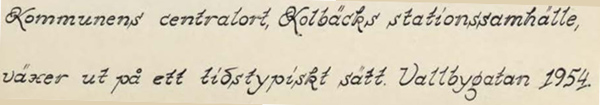 Kommunens centralort, Kolbäcks stationssamhälle,
växer ut på ett tidstypiskt sätt. Vallbygatan 1954.